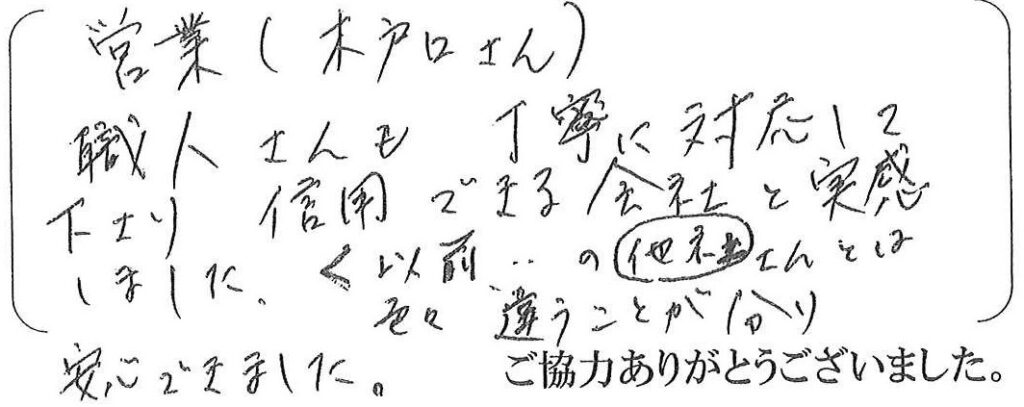 営業(木戸口さん)
職人さんも 丁寧に対応して
下さり 信用できる会社と実感
しました、く以前‥の他社さんとは
色々 違うことが分り
安心できました。
ご協力ありがとうございました。